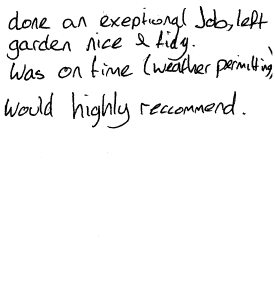 done an exeptional Job, left
garden nice & tidy.
Was on time (weather permitting)
Would highly reccommend.